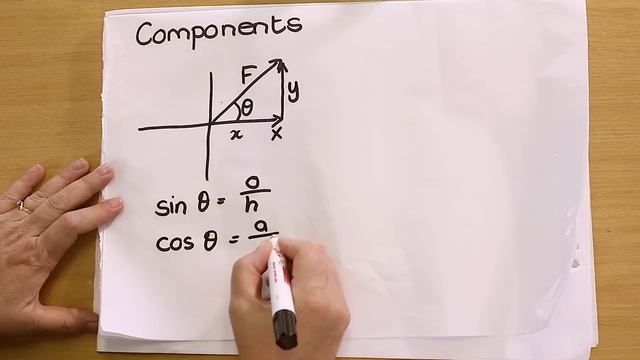 Components
F
y
θ
x x
sin θ = o/h
cos θ = a